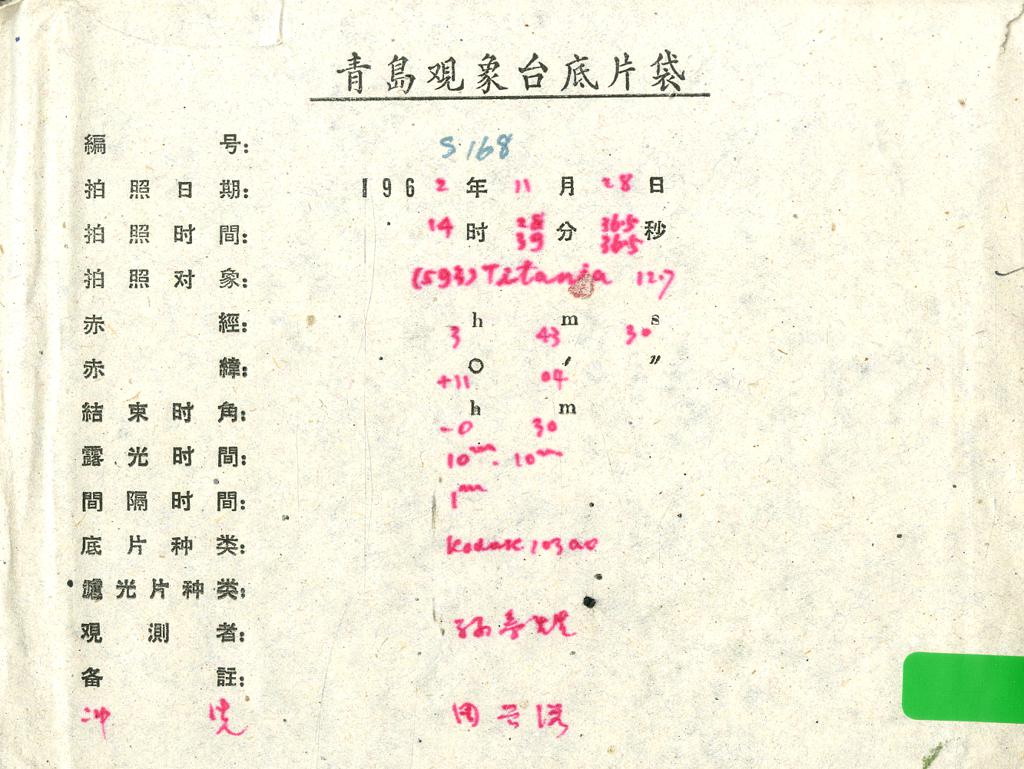 青島观象台底片袋
編号: S168
拍照日期: 1962年11月28日
拍照时間: 14时 28 39分 36.5 36.5秒
拍照对象: (593) Titania 12.7
赤經: 3h 43m 30s
赤緯: +11° 04′ ″
結束时角: -0h 30m
露光时間: 10m - 10m
間隔时間: 1m
底片种类: Kodak 103aO
濾光片种类:
观測者: 孙寿
备註:
冲洗 周